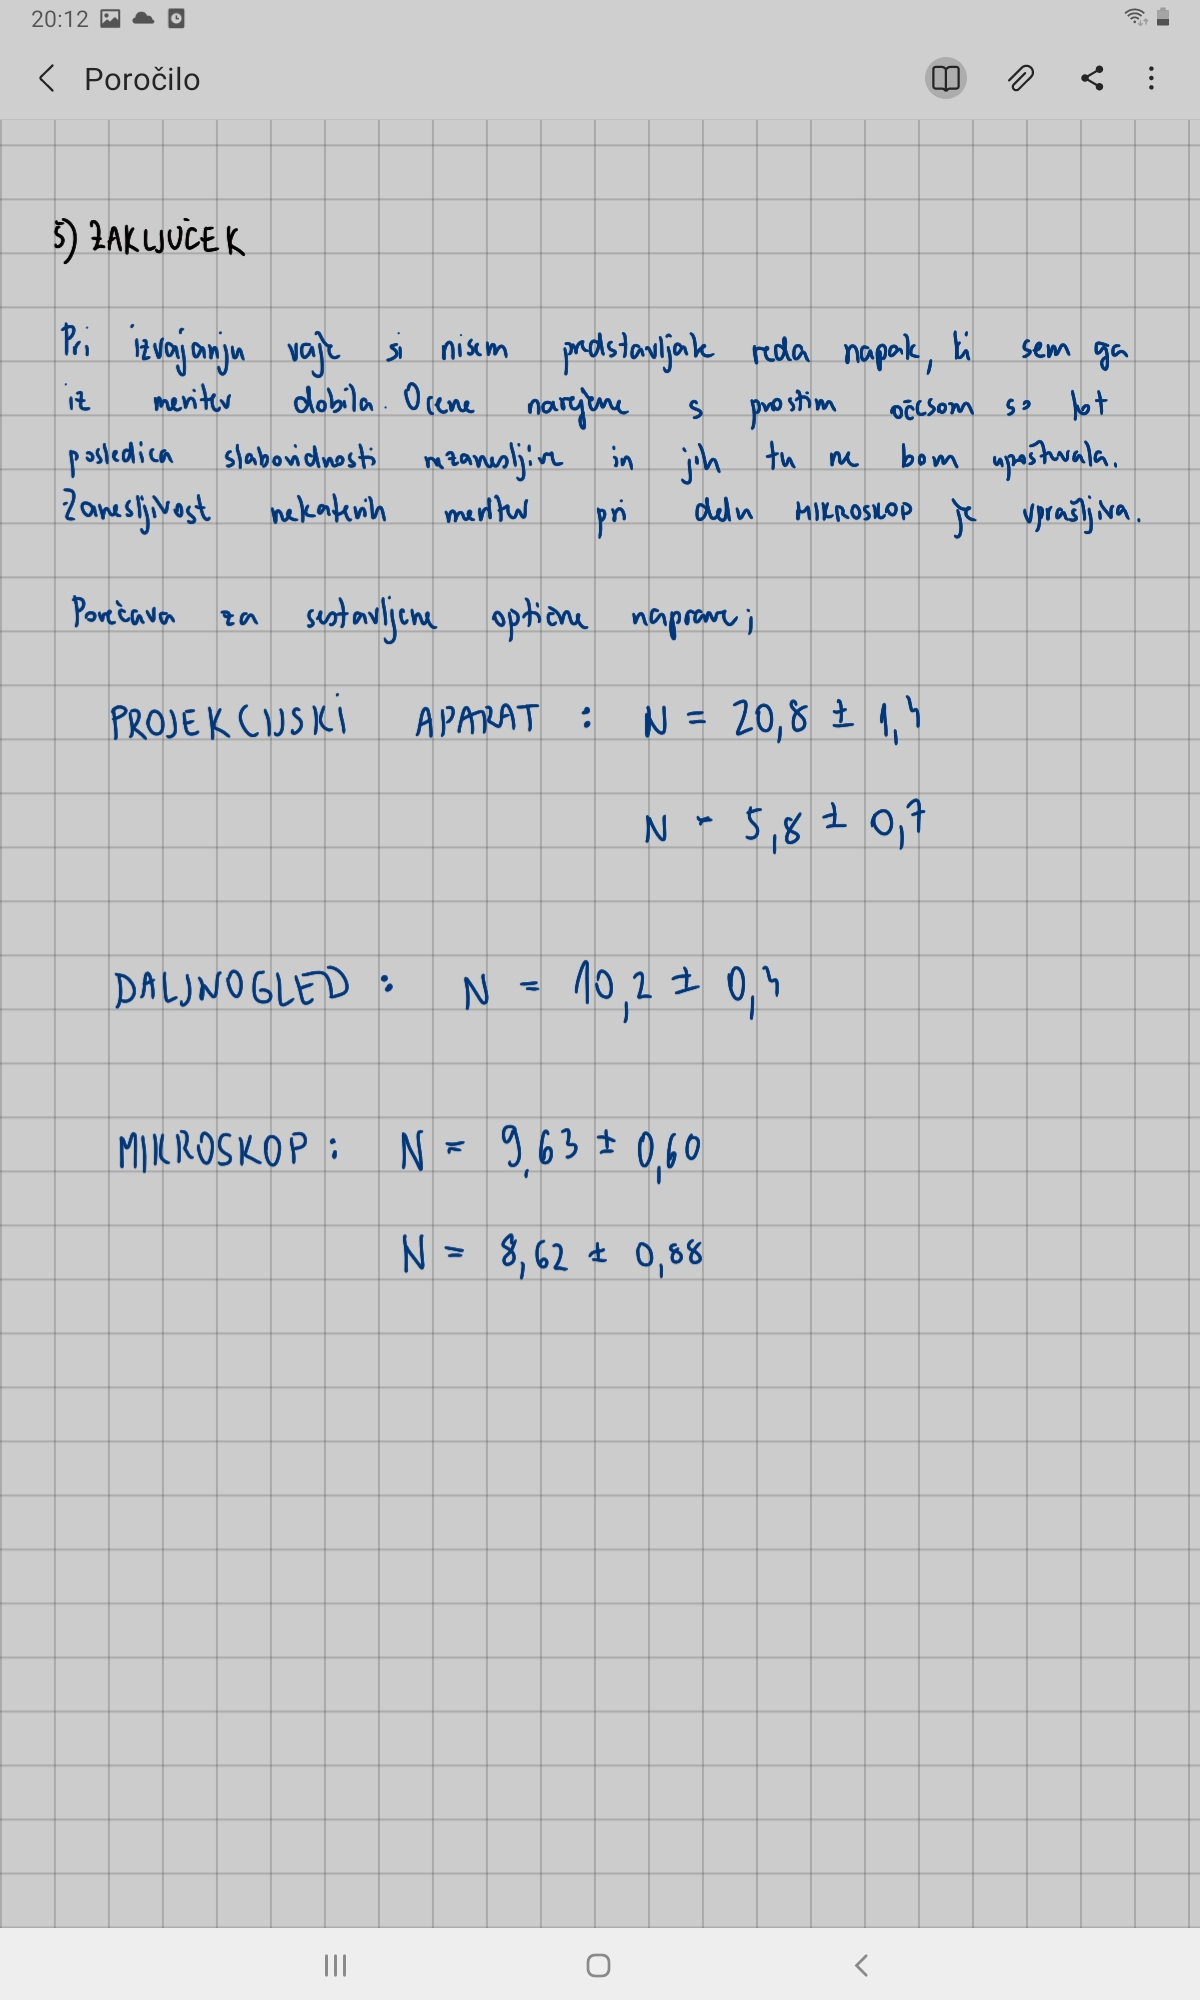 20:12
Poročilo
5) ZAKLJUČEK
Pri izvajanju vaje si nisem predstavljale reda napak, ki sem ga
iz meritev dobila. Ocene narejene s prostim očesom so kot
posledica slabovidnosti nezanesljive in jih tu ne bom upoštevala.
Zanesljivost nekaterih meritev pri delu MIKROSKOP je vprašljiva.
Povečava za sestavljene optične naprave;
PROJEKCIJSKI APARAT : N = 20,8 ± 1,4
N = 5,8 ± 0,7
DALJNOGLED : N = 10,2 ± 0,4
MIKROSKOP : N = 9,63 ± 0,60
N = 8,62 ± 0,88